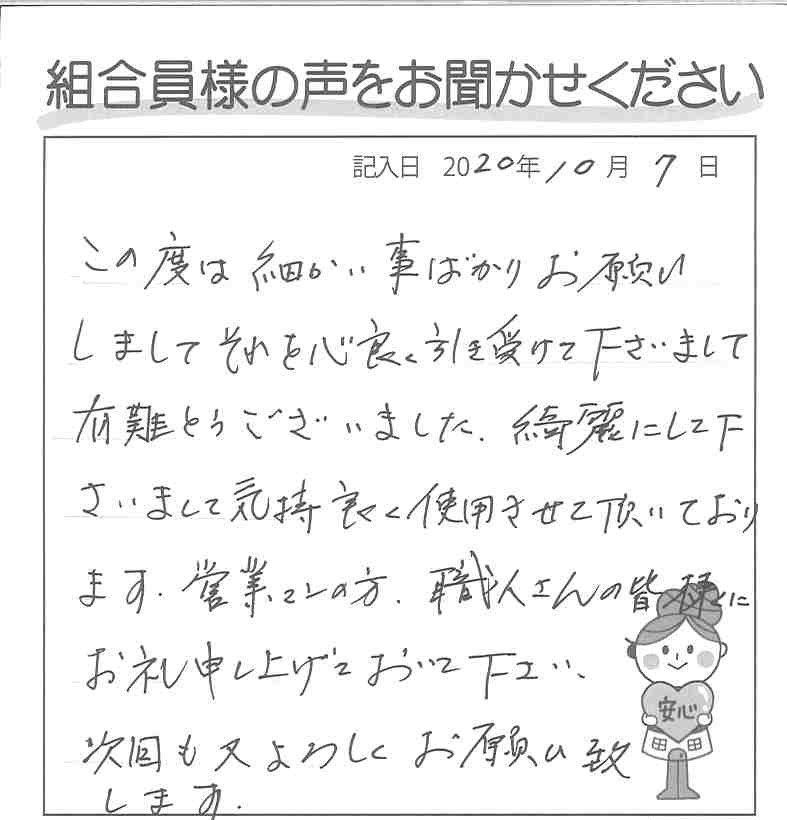 組合員様の声をお聞かせください
記入日 2020年10月7日
この度は細かい事ばかりお願い
しましてそれを心良く引き受けて下さいまして
有難とうございました、綺麗にして下
さいまして気持良く使用させて頂いており
ます。営業マンの方、職人さんの皆様に
お礼申し上げておいて下さい、
次回も又よろしくお願い致
します。
安心